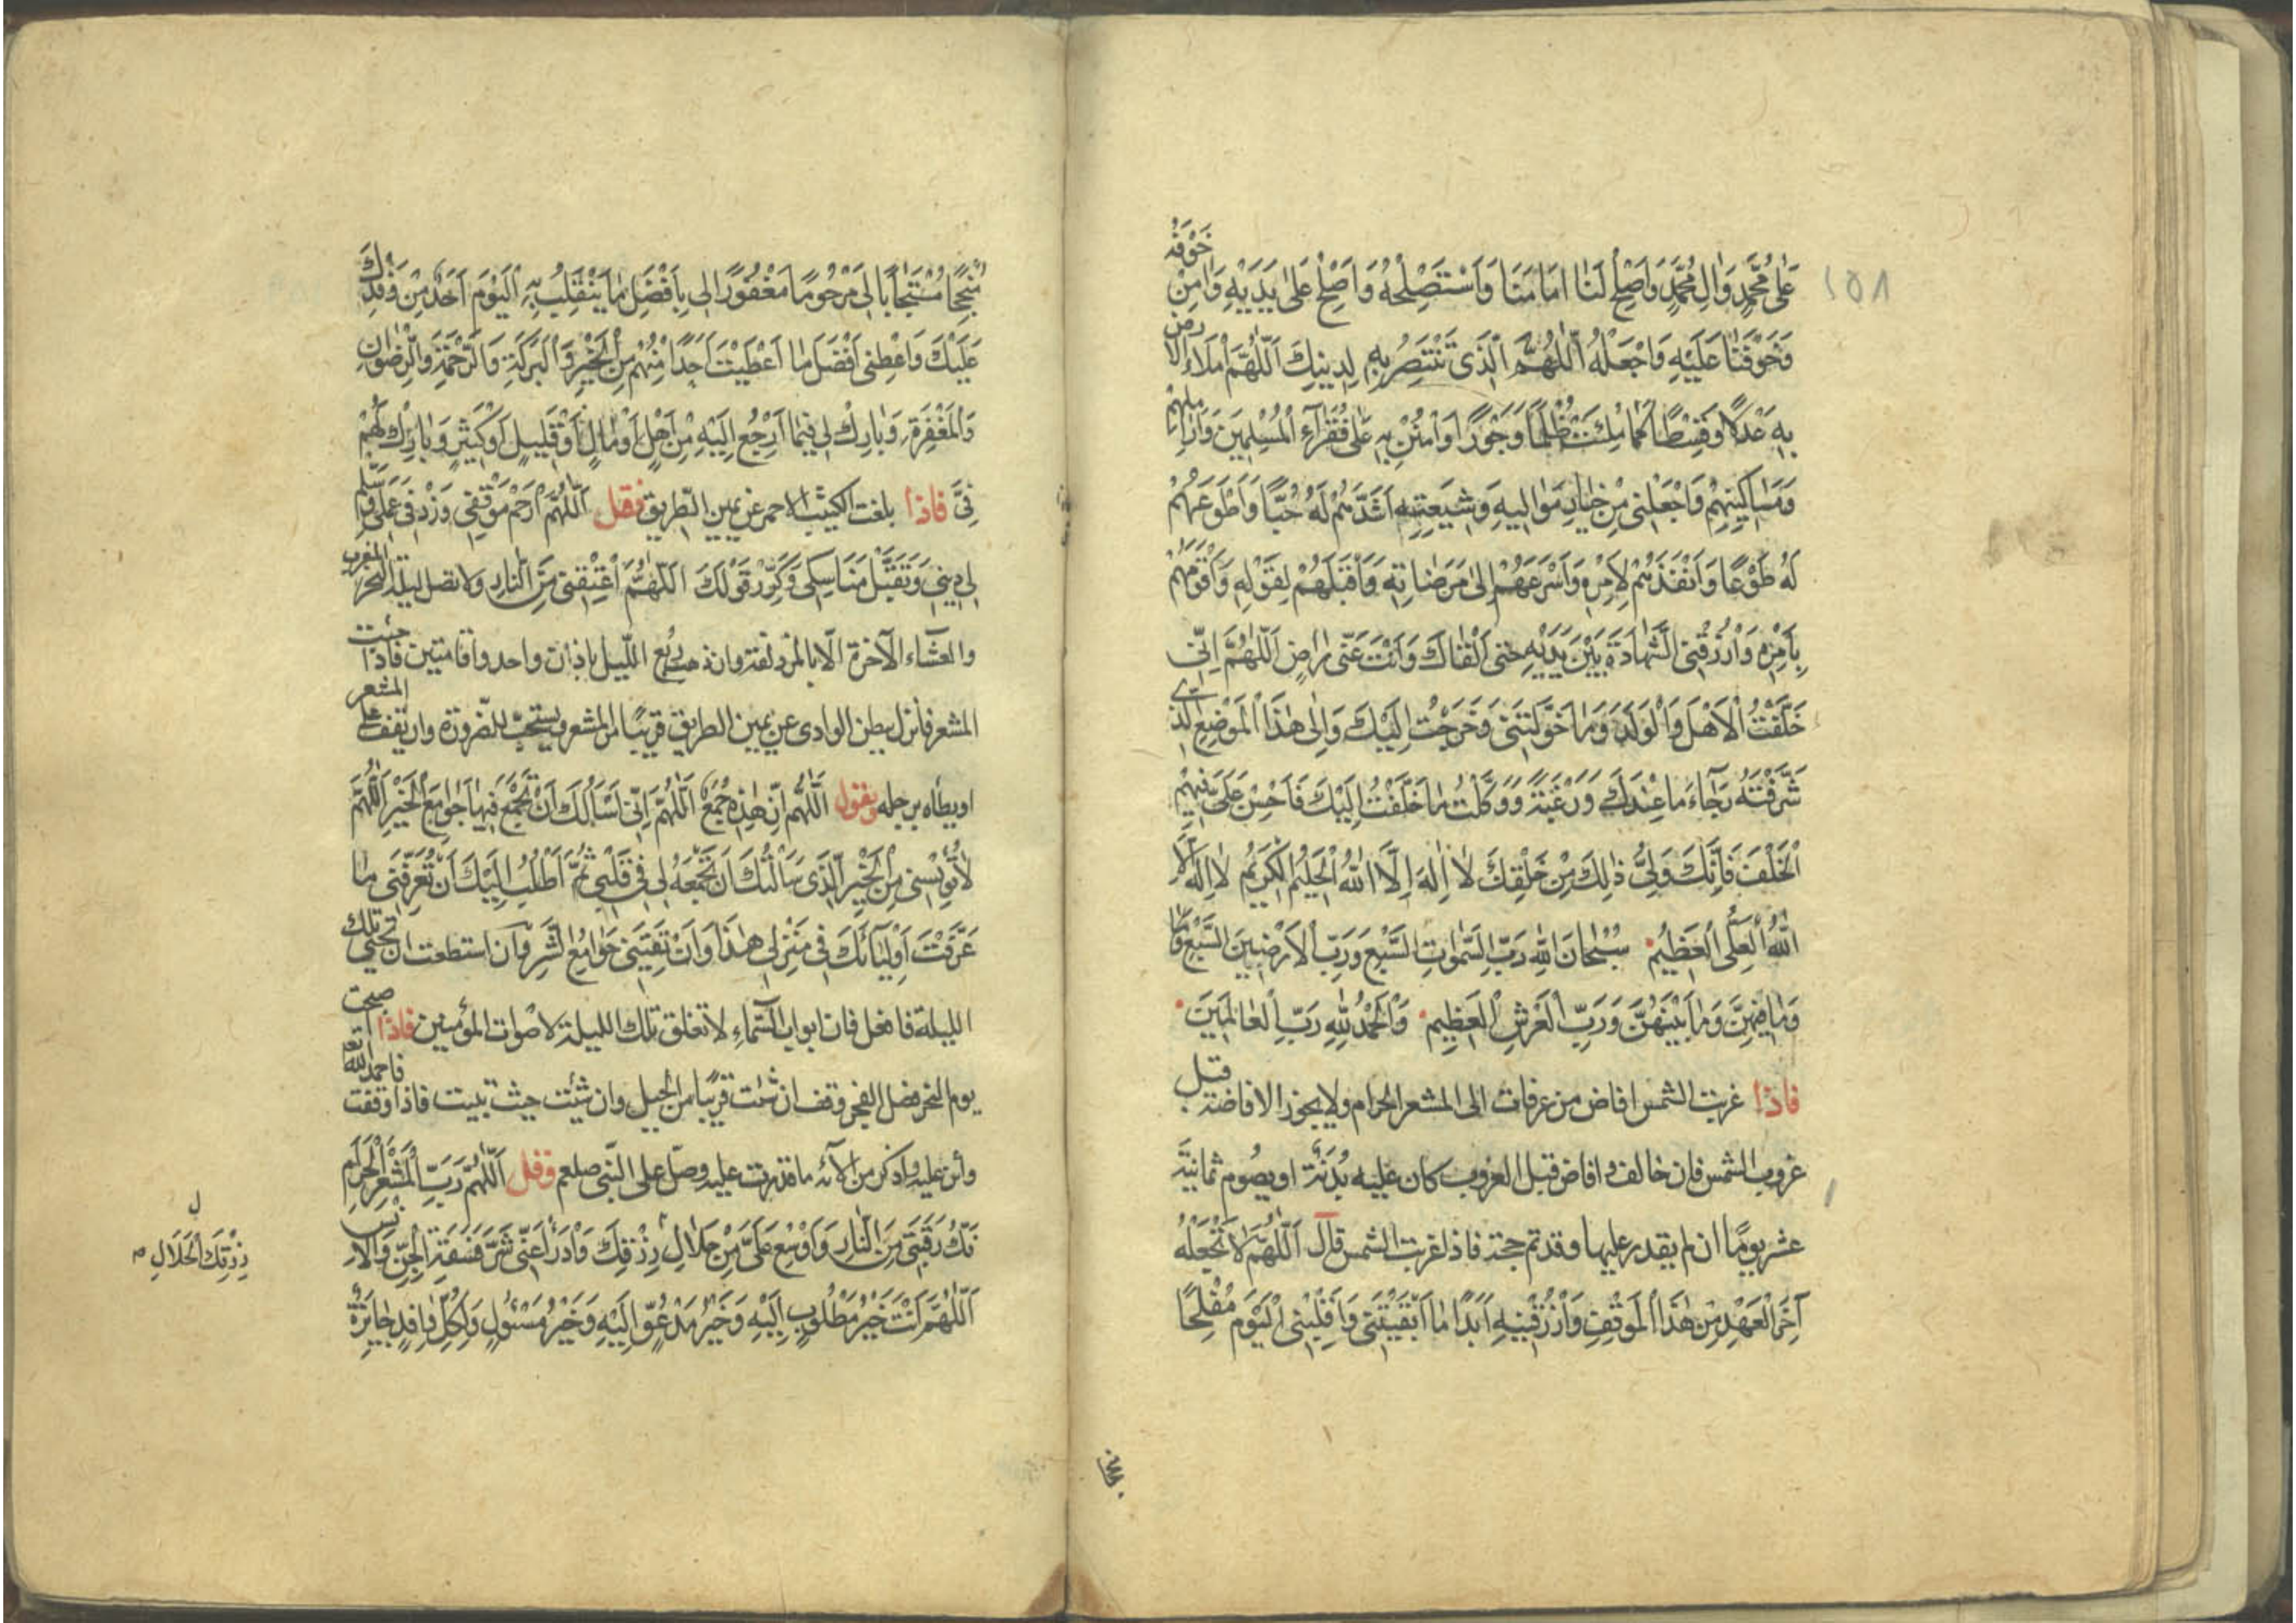 ١٥٨
عَلىٰ مُحَمَّدٍ وَاٰلِ مُحَمَّدٍ وَاَصْلِحْ لَنَا اِمَامَنَا وَاسْتَصْلِحْهُ وَاَصْلِحْ عَلىٰ يَدَيْهِ وَاٰمِنْ خَوْفَهُ
وَخَوْفَنَا عَلَيْهِ وَاجْعَلْهُ اَللّٰهُمَّ الَّذى تَنْتَصِرُ بِهِ لِدينِكَ اَللّٰهُمَّ امْلَاءِ الْاَرْضَ
بِهِ عَدْلًا وَقِسْطًا كَمَا مُلِئَتْ ظُلْمًا وَجَوْرًا وَامْنُنْ بِهِ عَلىٰ فُقَرَاءِ الْمُسْلِمينَ وَاَرَامِلِهِمْ
وَمَسَاكينِهِمْ وَاجْعَلْنى مِنْ خِيَارِ مَوَاليهِ وَشيعَتِهِ اَشَدِّهِمْ لَهُ حُبًّا وَاَطْوَعِهِمْ
لَهُ طَوْعًا وَاَنْفَذِهِمْ لِاَمْرِهِ وَاَسْرَعِهِمْ اِلىٰ مَرْضَاتِهِ وَاَقْبَلِهِمْ لِقَوْلِهِ وَاَقْوَمِهِمْ
بِاَمْرِهِ وَارْزُقْنِى الشَّهَادَةَ بَيْنَ يَدَيْهِ حَتّى اَلْقَاكَ وَاَنْتَ عَنّى رَاضٍ اَللّٰهُمَّ اِنّى
خَلَّفْتُ الْاَهْلَ وَالْوَلَدَ وَمَا خَوَّلْتَنى وَخَرَجْتُ اِلَيْكَ وَاِلىٰ هٰذَا الْمَوْضِعِ الَّذى
شَرَّفْتَهُ رَجَاءَ مَا عِنْدَكَ وَرَغْبَةً وَوَكَلْتُ مَا خَلَّفْتُ اِلَيْكَ فَاَحْسِنْ عَلَىَّ فيهِمُ
الْخَلَفَ فَاِنَّكَ وَلِىُّ ذٰلِكَ مِنْ خَلْقِكَ لَا اِلٰهَ اِلَّا اللّٰهُ الْحَليمُ الْكَريمُ لَا اِلٰهَ اِلَّا
اللّٰهُ الْعَلِىُّ الْعَظيمُ سُبْحَانَ اللّٰهِ رَبِّ السَّمٰوَاتِ السَّبْعِ وَرَبِّ الْاَرَضينَ السَّبْعِ وَمَا
وَمَا فيهِنَّ وَمَا بَيْنَهُنَّ وَرَبِّ الْعَرْشِ الْعَظيمِ وَالْحَمْدُ لِلّٰهِ رَبِّ الْعَالَمينَ
فاذا غربت الشمس افاض من عرفات الى المشعر الحرام ولا يجوز الافاضة قبل
غروب الشمس فان خالف وافاض قبل الغروب كان عليه بُدَنَة او يصوم ثمانيَة
عشر يومًا ان لم يقدر عليها وقد تم حجته فاذا غربت الشمس قال اَللّٰهُمَّ لَا تَجْعَلْهُ
آخِرَ الْعَهْدِ مِنْ هٰذَا الْمَوْقِفِ وَارْزُقْنيهِ اَبَدًا مَا اَبْقَيْتَنى وَاقْلِبْنى الْيَوْمَ مُفْلِحًا
مُنْجِحًا مُسْتَجَابًا لى مَرْحُومًا مَغْفُورًا لى بِاَفْضَلِ مَا يَنْقَلِبُ بِهِ الْيَوْمَ اَحَدٌ مِنْ وَفْدِكَ
عَلَيْكَ وَاَعْطِنى اَفْضَلَ مَا اَعْطَيْتَ اَحَدًا مِنْهُمْ مِنَ الْخَيْرِ وَالْبَرَكَةِ وَالرَّحْمَةِ وَالرِّضْوَانِ
وَالْمَغْفِرَةِ وَبَارِكْ لى فيمَا اَرْجِعُ اِلَيْهِ مِنْ اَهْلٍ اَوْ مَالٍ اَوْ قَليلٍ اَوْ كَثيرٍ وَبَارِكْ لَهُمْ
فِىَّ فاذا بلغت الكثيب الاحمر عن يمين الطّريق فقل اَللّٰهُمَّ ارْحَمْ مَوْقِفى وَزِدْ فى عَمَلى وَسَلِّمْ
لى دينى وَتَقَبَّلْ مَنَاسِكى وَكَرِّرْ قَوْلَكَ اَللّٰهُمَّ اَعْتِقْنى مِنَ النَّارِ ولا تصل ليلة النحر المغرب
والعشاء الآخرة الّا بالمزدلفة وان ذهب ربع اللّيل باذان واحد واقامتين فاذا جئت
المشعر فانزل ببطن الوادى عن يمين الطريق قريبًا من المشعر ويستحبّ للصّرورة وان يقف على المشعر
او يطأه برجله ويقول اَللّٰهُمَّ اِنَّ هٰذِهِ جُمَعٌ اَللّٰهُمَّ اِنّى اَسْاَلُكَ اَنْ تَجْمَعَ فيهَا جَوَامِعَ الْخَيْرِ اَللّٰهُمَّ
لَا تُؤْيِسْنى مِنَ الْخَيْرِ الَّذى سَاَلْتُكَ اَنْ تَجْمَعَهُ لى فى قَلْبى ثُمَّ اَطْلُبُ اِلَيْكَ اَنْ تُعَرِّفَنى مَا
عَرَّفْتَ اَوْلِيَائَكَ فى مَنْزِلى هٰذَا وَاَنْ تَقِيَنى جَوَامِعَ الشَّرِّ وان استطعت ان تحيى تلك
الليلة فافعل فان ابواب السّماء لا تغلق تلك الليلة لاصوات المؤمنين فاذا اصبحت
يوم النحر فصل الفجر وقف ان شئت قريبًا من الجبل وان شئت حيث تبيت فاذا وقفت فاحمد الله تع
واثن عليه واذكر من الآئه ما قدرت عليه وصلّ على النّبى صلعم وقل اَللّٰهُمَّ رَبَّ الْمَشْعَرِ الْحَرَامِ
فُكَّ رَقَبَتى مِنَ النَّارِ وَاَوْسِعْ عَلَىَّ مِنْ حَلَالِ رِزْقِكَ وَادْرَاْ عَنّى شَرَّ فَسَقَةِ الْجِنِّ وَالْاِنْسِ
اَللّٰهُمَّ اَنْتَ خَيْرُ مَطْلُوبٍ اِلَيْهِ وَخَيْرُ مَدْعُوٍّ اِلَيْهِ وَخَيْرُ مَسْئُولٍ وَلِكُلِّ وَافِدٍ جَايِزَةٌ
ل
رِزْقِكَ الْحَلَالِ م